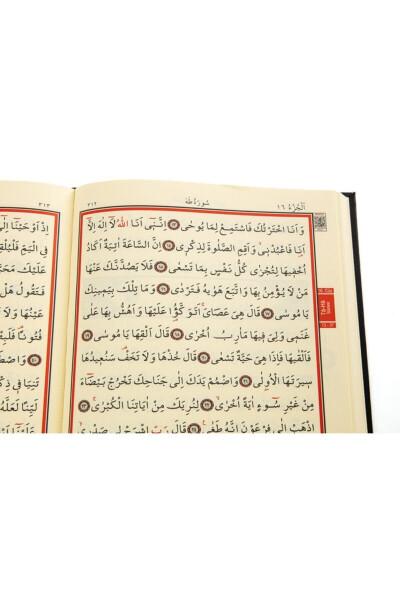 ٣١٢ سُورَةُ طٰهٰ اَلْجُزْءُ ١٦
وَاَنَا اخْتَرْتُكَ فَاسْتَمِعْ لِمَا يُوحٰى ﴿١٣﴾ اِنَّن۪ٓي اَنَا اللّٰهُ لَٓا اِلٰهَ اِلَّٓا
اَنَا۬ فَاعْبُدْن۪يۙ وَاَقِمِ الصَّلٰوةَ لِذِكْر۪ي ﴿١٤﴾ اِنَّ السَّاعَةَ اٰتِيَةٌ اَكَادُ
اُخْف۪يهَا لِتُجْزٰى كُلُّ نَفْسٍ بِمَا تَسْعٰى ﴿١٥﴾ فَلَا يَصُدَّنَّكَ عَنْهَا
مَنْ لَا يُؤْمِنُ بِهَا وَاتَّبَعَ هَوٰيهُ فَتَرْدٰى ﴿١٦﴾ وَمَا تِلْكَ بِيَم۪ينِكَ
يَا مُوسٰى ﴿١٧﴾ قَالَ هِيَ عَصَايَۚ اَتَوَكَّؤُ۬ا عَلَيْهَا وَاَهُشُّ بِهَا عَلٰى
غَنَم۪ي وَلِيَ ف۪يهَا مَاٰرِبُ اُخْرٰى ﴿١٨﴾ قَالَ اَلْقِهَا يَا مُوسٰى ﴿١٩﴾
فَاَلْقٰيهَا فَاِذَا هِيَ حَيَّةٌ تَسْعٰى ﴿٢٠﴾ قَالَ خُذْهَا وَلَا تَخَفْ۠ سَنُع۪يدُهَا
س۪يرَتَهَا الْاُو۫لٰى ﴿٢١﴾ وَاضْمُمْ يَدَكَ اِلٰى جَنَاحِكَ تَخْرُجْ بَيْضَٓاءَ
مِنْ غَيْرِ سُٓوءٍ اٰيَةً اُخْرٰىۙ ﴿٢٢﴾ لِنُرِيَكَ مِنْ اٰيَاتِنَا الْكُبْرٰىۚ ﴿٢٣﴾
اِذْهَبْ اِلٰى فِرْعَوْنَ اِنَّهُ طَغٰى۟ ﴿٢٤﴾ قَالَ رَبِّ اشْرَحْ ل۪ي صَدْر۪يۙ
٣١٣
اِذْ اَوْحَيْنَٓا اِلٰٓى
فِي الْيَمِّ فَلْيُلْقِهِ
عَلَيْكَ مَحَبَّةً
فَتَقُولُ هَلْ
عَيْنُهَا وَلَا
فُتُونًا۠ فَلَبِثْتَ
﴿٤٠﴾ وَاصْطَنَعْتُكَ
تَنِيَا ف۪ي ذِكْر۪ي
لَيِّنًا لَعَلَّهُ
عَلَيْنَٓا